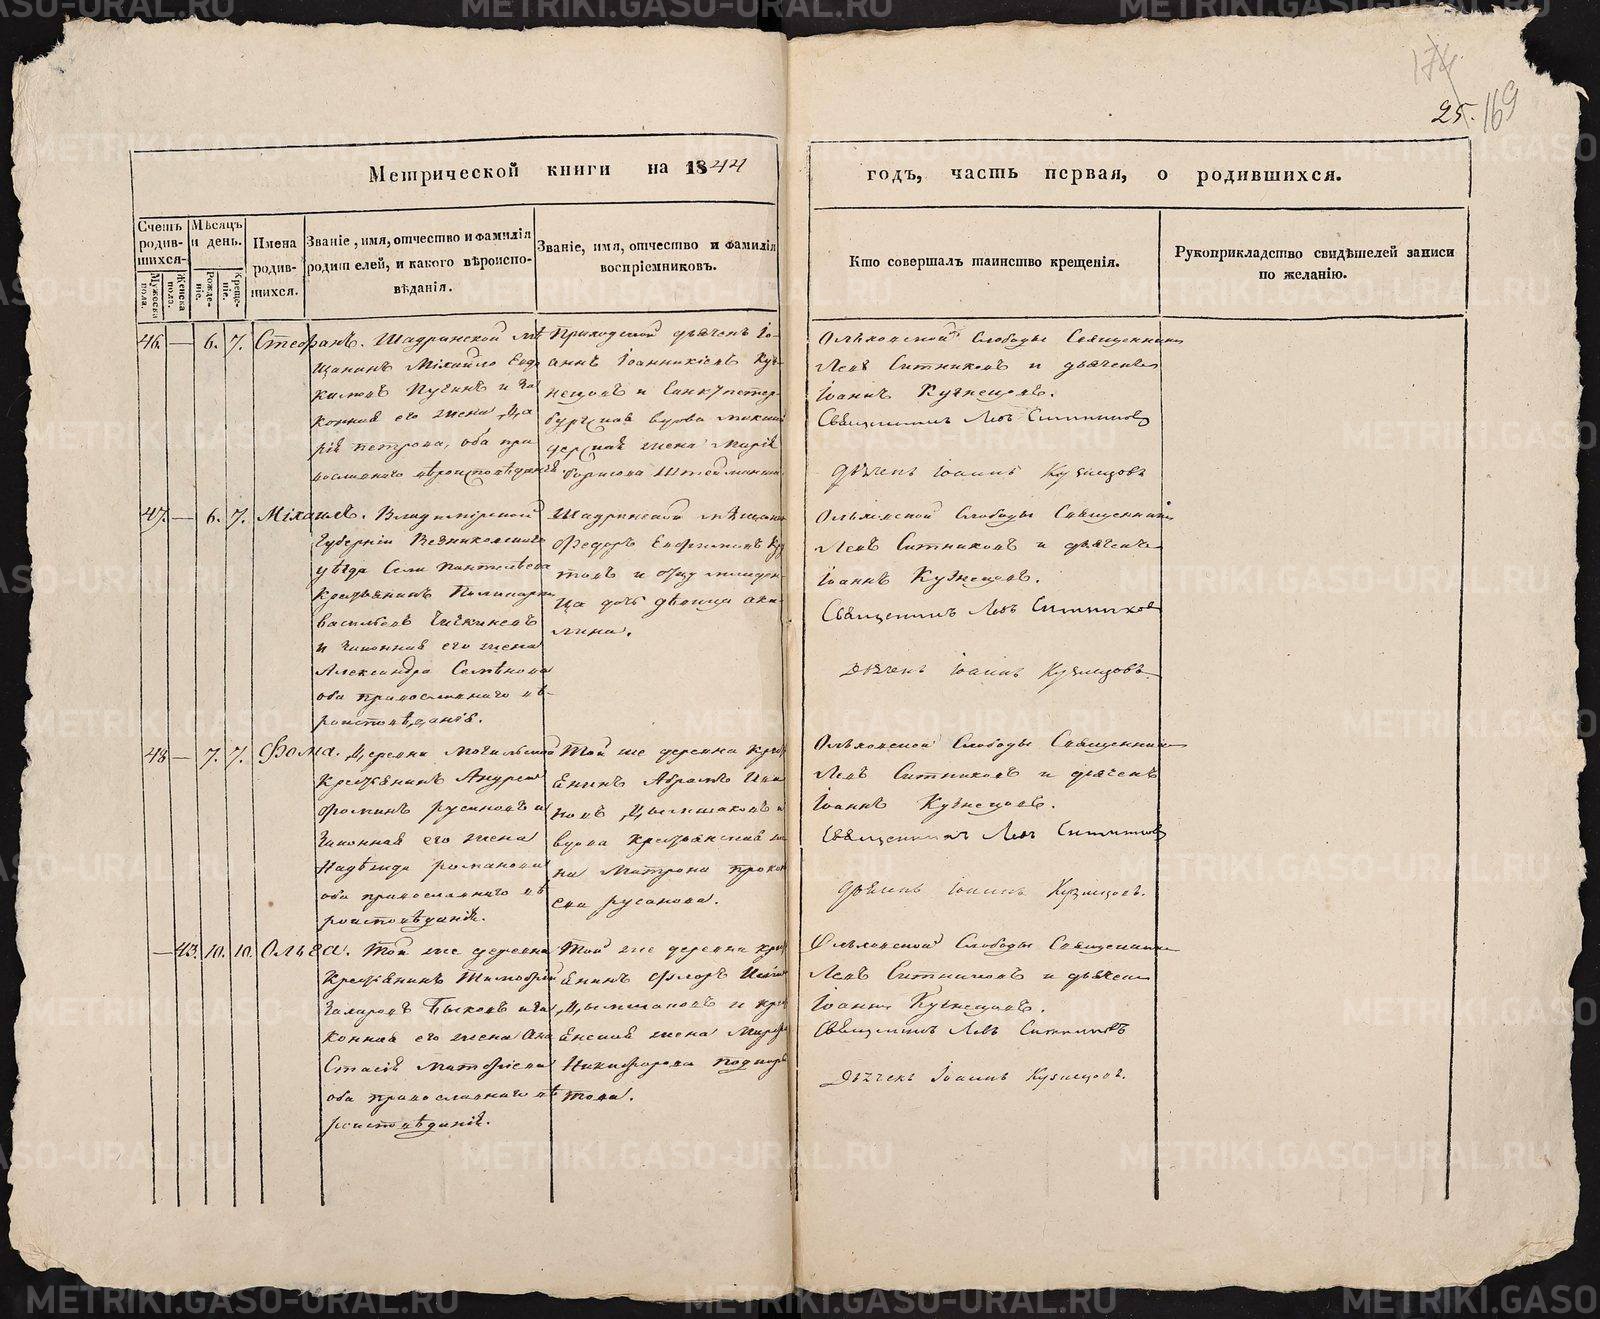 174
25. 169
Метрической книги на 1844
годъ, часть первая, о родившихся.
Счетъ родив-шихся.
Мужеска пола.
Женска пола.
Мѣсяцъ и день.
Рожде-ніе.
Креще-ніе.
Имена родив-шихся.
Званіе, имя, отчество и фамилія
родителей, и какого вѣроиспо-
вѣданія.
Званіе, имя, отчество и фамилія
воспріемниковъ.
Кто совершалъ таинство крещенія.
Рукоприкладство свидѣтелей записи
по желанію.
46. — 6. 7. Стефанъ. Шадринской мѣ
щанинъ Михайло Евдо
кимовъ Пугинъ и за
конная его жена Да
рія петрова, оба пра
вославнаго вѣроисповѣданія
Приходской дьячекъ Іо-
аннъ Іоанникіевъ Куз-
нецовъ и Санкт петер-
бургская вдова
жена Марія
Борисова
Ольховской Слободы Священникъ
Левъ Ситниковъ и дьячекъ
Іоаннъ Кузнецовъ.
Священникъ Левъ Ситниковъ
Дьячекъ Іоаннъ Кузнецовъ
47. — 6. 7. Михаилъ. Владимірской
Губерніи Вязниковскаго
уѣзда Села
Крестьянинъ
васильевъ
и законная его жена
Александра Семѣнова
оба православнаго вѣ-
роисповѣданія.
Шадринской мѣщанинъ
Федоръ
и отцу младен-
ца дочь дѣвица аки-
лина.
Ольховской Слободы Священникъ
Левъ Ситниковъ и дьячекъ
Іоаннъ Кузнецовъ.
Священникъ Левъ Ситниковъ
Дьячекъ Іоаннъ Кузнецовъ
48 — 7. 7. Фома. Деревни Могильской
Крестьянинъ Андрей
Фоминъ русиновъ и
Законная его жена
Надѣжда романова
оба православнаго вѣ
роисповѣданія.
Той же деревни крест
янинъ Абрамъ Ива
новъ Дымшаковъ и
вдова крестьянская же
на Матрона проко
ева русанова.
Ольховской Слободы Священникъ
Левъ Ситниковъ и дьячекъ
Іоаннъ Кузнецовъ.
Священникъ Левъ Ситниковъ
Дьячекъ Іоаннъ Кузнецовъ.
— 43. 10. 10. Ольга. Той же деревни
Крестьянинъ Тимофѣй
Захаровъ Быковъ и за
конная его жена Ана
Стасія Матвѣева
оба православнаго вѣ
роисповѣданія.
Той же деревни крест
янинъ Флоръ
Дымшаковъ и крест
янская жена
Никифорова
това.
Ольховской Слободы Священникъ
Левъ Ситниковъ и дьячекъ
Іоаннъ Кузнецовъ.
Священникъ Левъ Ситниковъ
Дьячекъ Іоаннъ Кузнецовъ.
METRIKI.GASO-URAL.RU